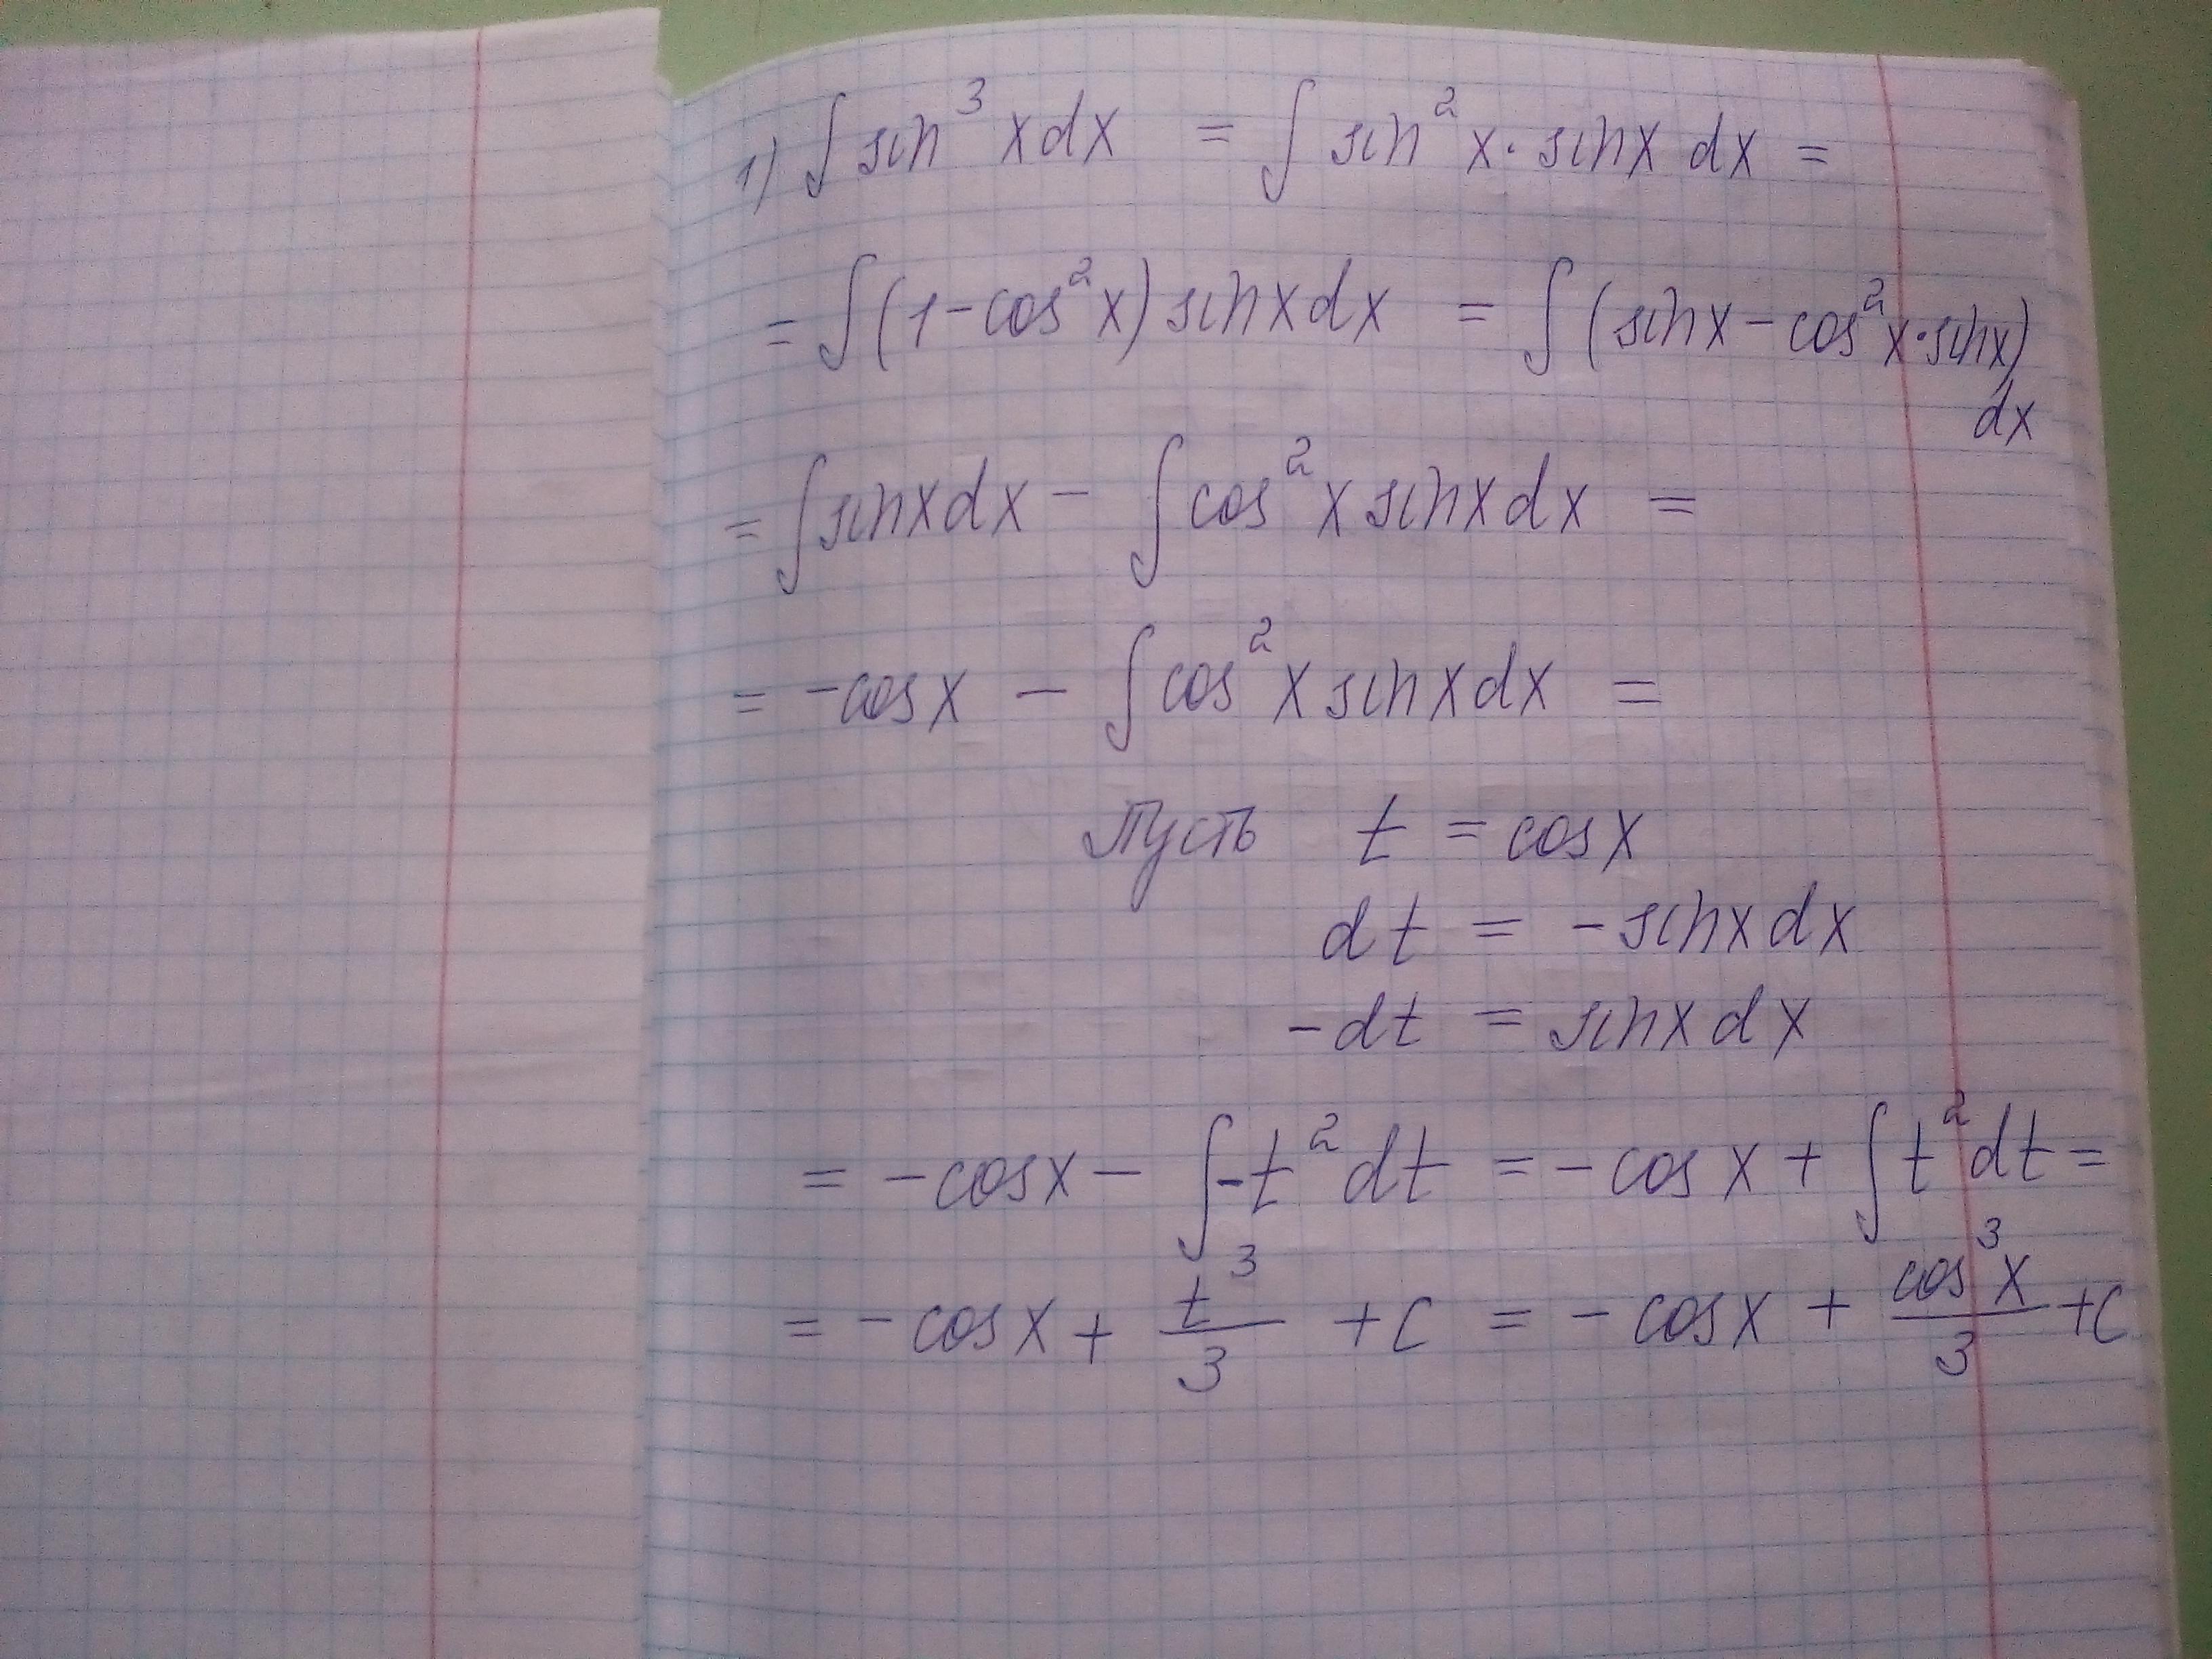 1) ∫ sin³ x dx = ∫ sin² x · sin x dx =
= ∫ (1 - cos² x) sin x dx = ∫ (sin x - cos² x · sin x)
dx
= ∫ sin x dx - ∫ cos² x sin x dx =
= - cos x - ∫ cos² x sin x dx =
Пусть t = cos x
dt = - sin x dx
- dt = sin x dx
= - cos x - ∫ -t² dt = - cos x + ∫ t² dt =
= - cos x + t³/3 + C = - cos x + cos³ x/3 + C